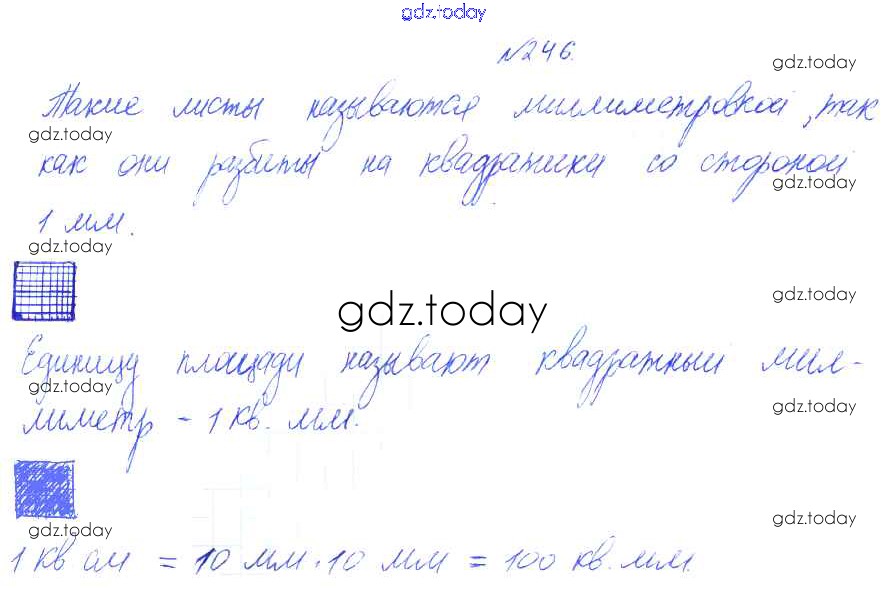 gdz.today
№246.
gdz.today
Такие листы называются миллиметровкой, так
gdz.today
как они разбиты на квадратики со стороной
gdz.today
1 мм.
gdz.today
gdz.today
gdz.today
Единицу площади называют квадратный мил-
gdz.today
лиметр - 1 кв. мм.
gdz.today
gdz.today
gdz.today
1 кв см = 10 мм · 10 мм = 100 кв. мм.